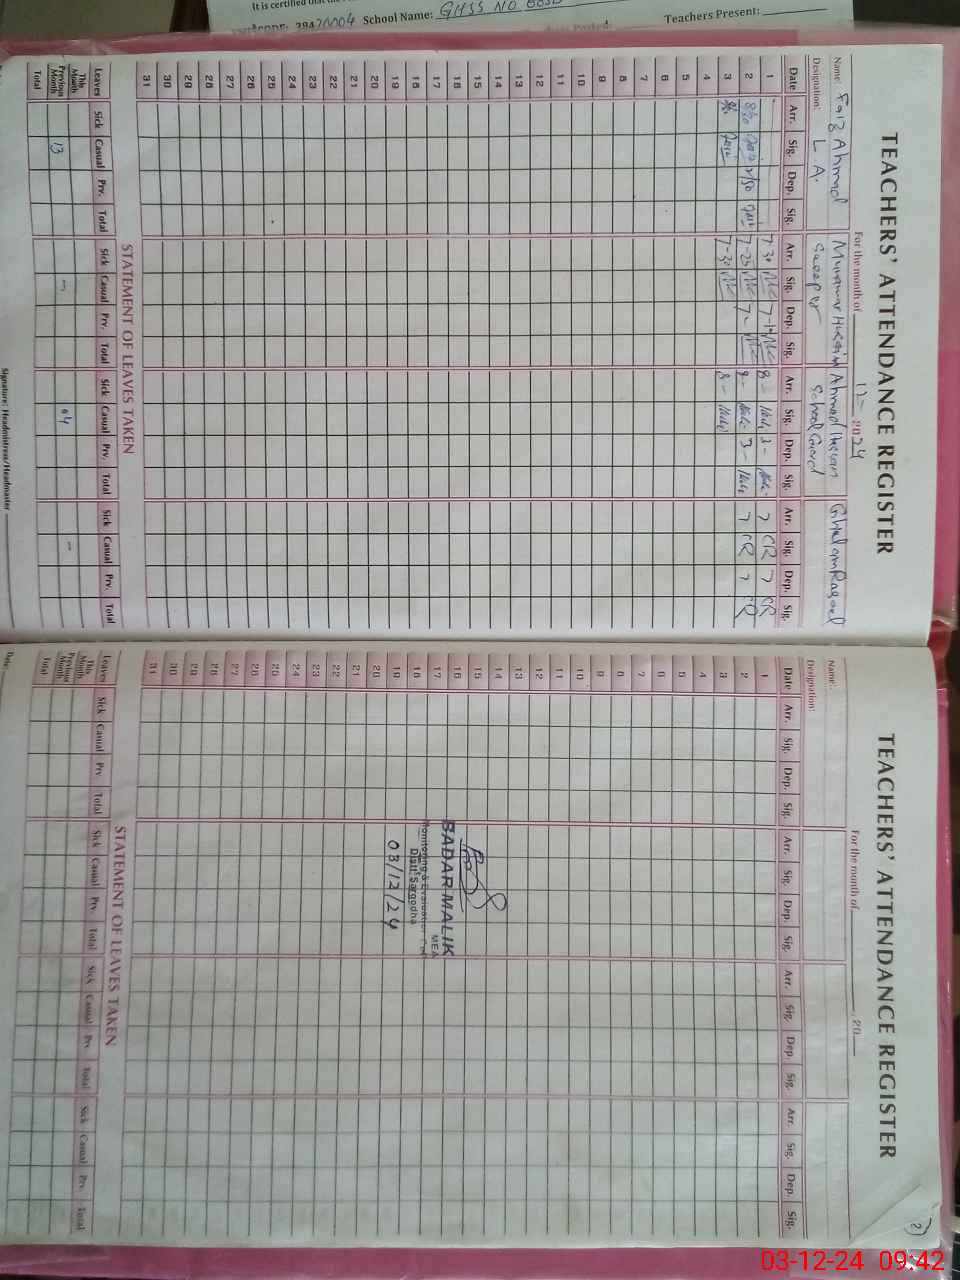 It is certified that the
39420004 School Name: GHSS NO
Teachers Present:
TEACHERS' ATTENDANCE REGISTER
For the month of 12 2024
Name: Faiz Ahmad Munawar Hussain Ahmad Hassan Ghulam Rasool
Designation: L.A. Sweeper School Guard
Date Arr. Sig. Dep. Sig. Arr. Sig. Dep. Sig. Arr. Sig. Dep. Sig. Arr. Sig. Dep. Sig.
1 7-30 7-10 8- 3- 7 GR 7 GR
2 7-25 7- 8- 3- 7 GR 7 GR
3 7-30 8-
4
5
6
7
8
9
10
11
12
13
14
15
16
17
18
19
20
21
22
23
24
25
26
27
28
29
30
31
STATEMENT OF LEAVES TAKEN
Leaves Sick Casual Prv. Total Sick Casual Prv. Total Sick Casual Prv. Total Sick Casual Prv. Total
This Month
Previous Month 13 - 04 -
Total
Signature: Headmistress/Headmaster
2
TEACHERS' ATTENDANCE REGISTER
For the month of 20
Name:
Designation:
Date Arr. Sig. Dep. Sig. Arr. Sig. Dep. Sig. Arr. Sig. Dep. Sig. Arr. Sig. Dep. Sig.
1
2
3
4
5
6
7
8
9
10
11
12
13
14
15
16
17
18
19
20
21
22
23
24
25
26
27
28
29
30
31
BADAR MALIK
MEA
Monitoring & Evaluation
Distt: Sargodha
03/12/24
STATEMENT OF LEAVES TAKEN
Leaves Sick Casual Prv. Total Sick Casual Prv. Total Sick Casual Prv. Total Sick Casual Prv. Total
This Month
Previous Month
Total
Date:
03-12-24 09:42